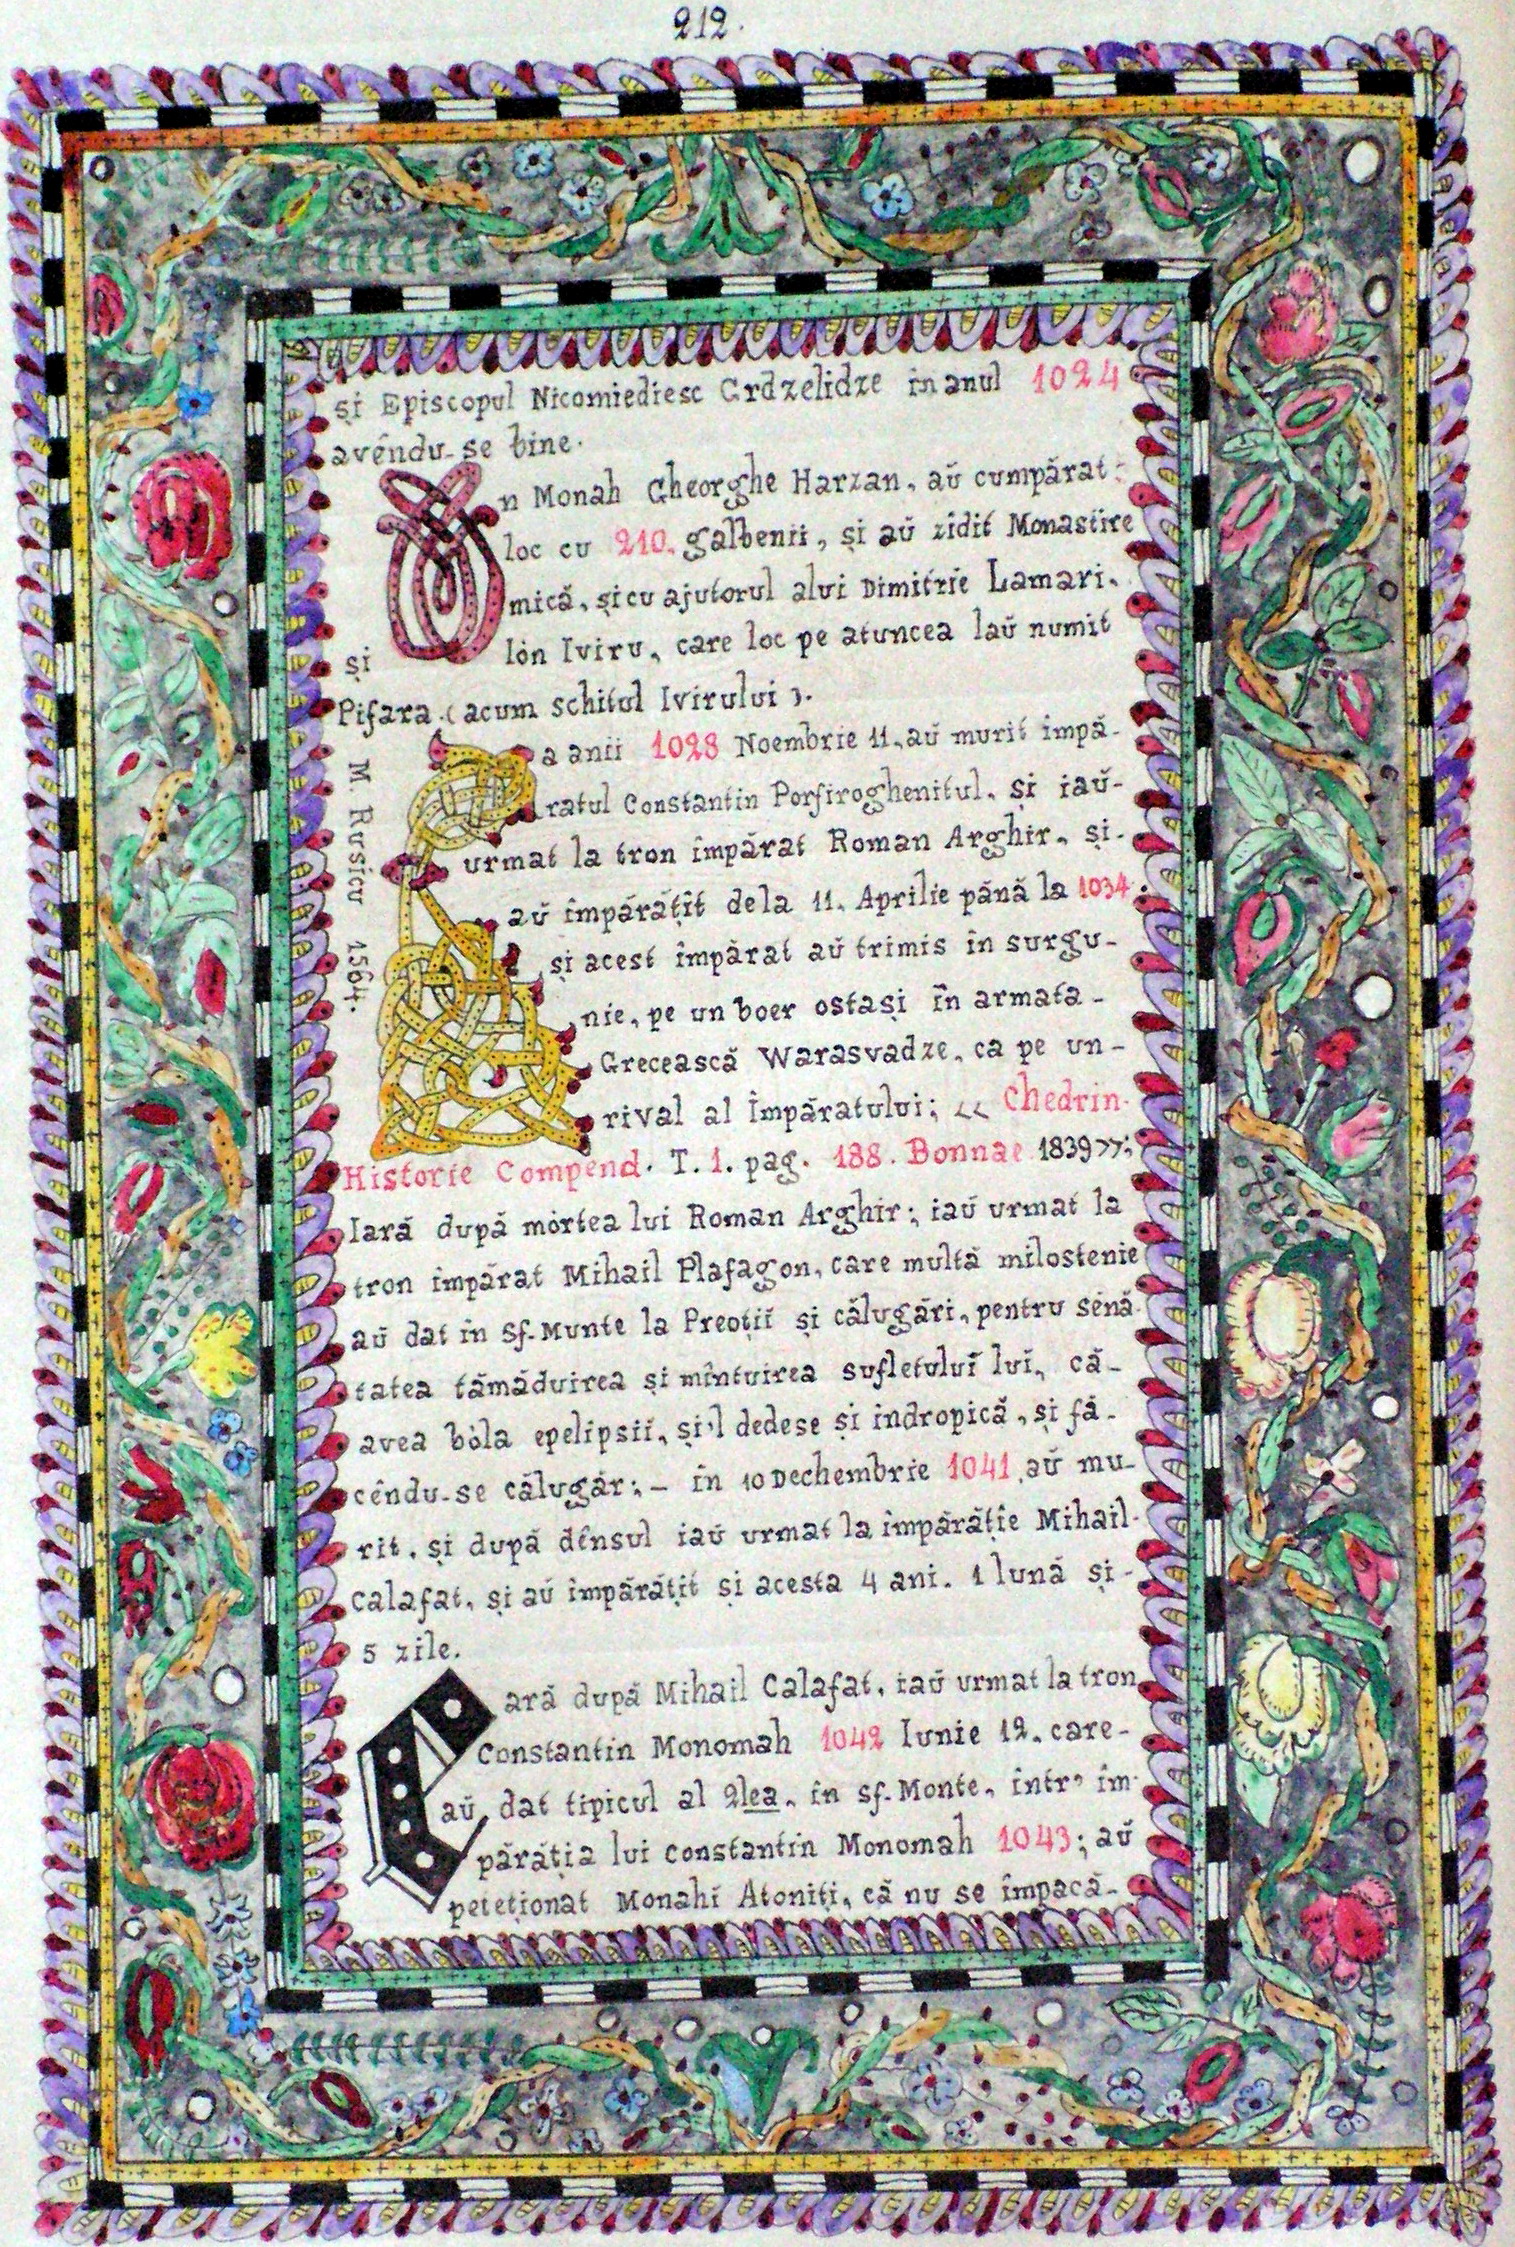 212.
și Episcopul Nicomiediesc Grdzelidze in anul 1024
avéndu-se bine.
Un Monah Gheorghe Harzan, aŭ cumpărat
loc cu 210. galbenii, și aŭ zidit Monastire
mică, și cu ajutorul alui Dimitrie Lamari.
și lón Iviru, care loc pe atuncea laŭ numit
Pifara (acum schitul Ivirului).
La anii 1028 Noembrie 11, aŭ murit împă-
ratul Constantin Porfiroghenitul, și iaŭ-
urmat la tron împărat Roman Arghir, și-
aŭ împărățit dela 11. Aprilie până la 1034
și acest împărat aŭ trimis în surgu-
nie, pe un boer ostași în armata-
Grecească Warasvadze, ca pe un-
rival al Împăratului; << Chedrin-
Historie Compend. T. 1. pag. 188. Bonnae 1839>>;
Iară după mórtea lui Roman Arghir; iaŭ urmat la
tron împărat Mihail Plafagon, care multă milostenie
aŭ dat în Sf. Munte la Preoții și călugări, pentru sénă-
tatea tămăduirea și mîntuirea sufletului lui, că-
avea bóla epelipsii, și'l dedese și indropică, și fă-
céndu-se călugăr; - în 10 Dechembrie 1041, aŭ mu-
rit, și după dênsul iaŭ urmat la împărăție Mihail-
Calafat, și aŭ împărățit și acesta 4 ani. 1 lună și-
5 zile.
Iară după Mihail Calafat, iaŭ urmat la tron
Constantin Monomah 1042 Iunie 12. care-
aŭ dat tipicul al 2lea, în sf. Monte, într' îm-
părăția lui Constantin Monomah 1043; aŭ
petetionat Monahi Atoniți, că nu se împacă-
M. Rusicu 1564.